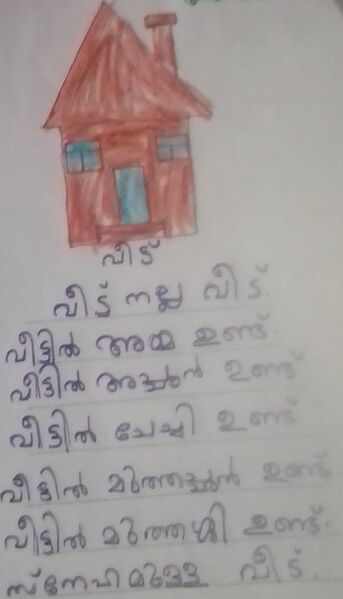 വീട്
വീട് നല്ല വീട്.
വീട്ടിൽ അമ്മ ഉണ്ട്.
വീട്ടിൽ അച്ഛൻ ഉണ്ട്
വീട്ടിൽ ചേച്ചി ഉണ്ട്
വീട്ടിൽ മുത്തച്ഛൻ ഉണ്ട്
വീട്ടിൽ മുത്തശ്ശി ഉണ്ട്.
സ്നേഹമുള്ള വീട്.